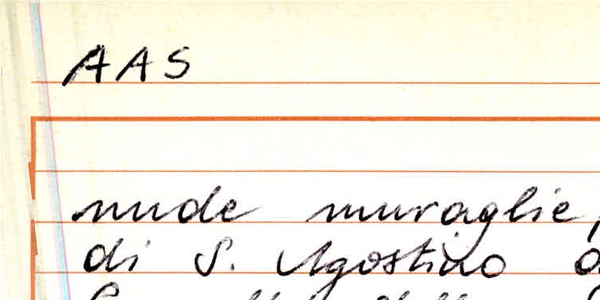 AAS
nude muraglie,
di S. Agostino